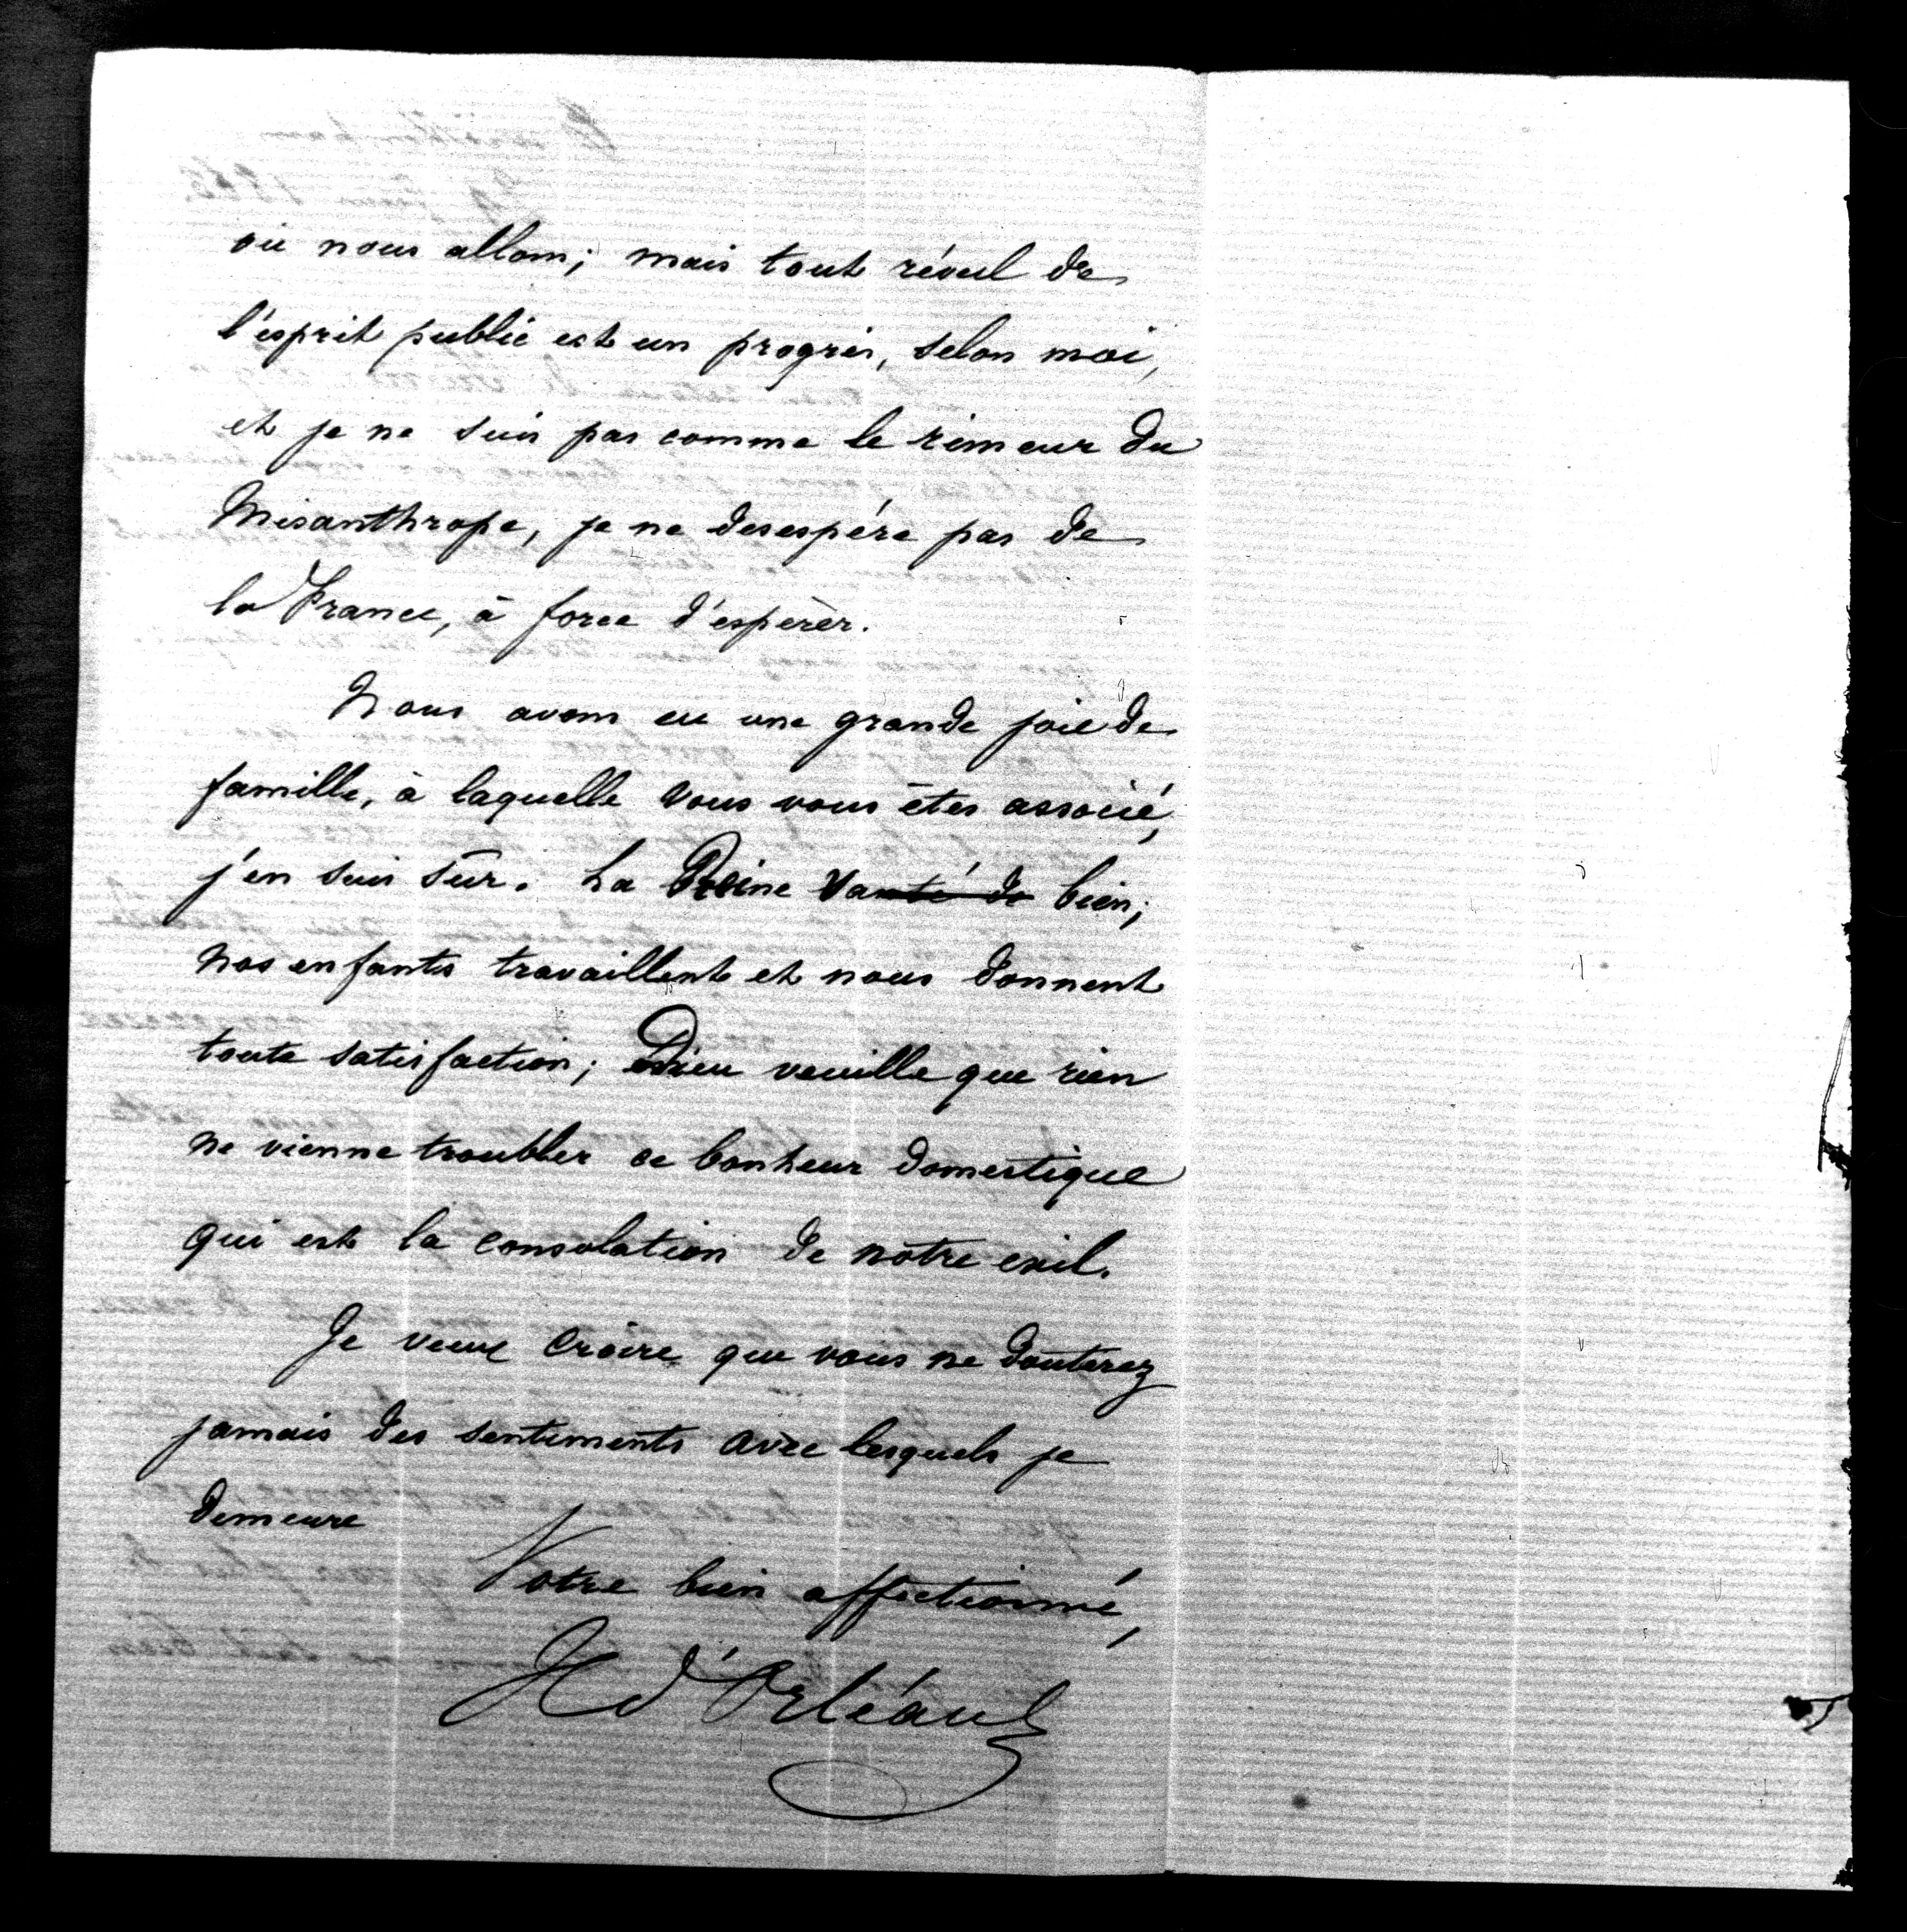 où nous allons; mais tout réveil de
l'esprit public est un progrès, selon moi,
et je ne suis pas comme le rimeur du
Misanthrope, je ne desespére pas de
la France, à force d'espérer.
Nous avons eu une grande joie de
famille, à laquelle vous vous êtes associé,
j'en suis sûr. La Reine va bien;
nos enfants travaillent et nous donnent
toute satisfaction; Dieu veuille que rien
ne vienne troubler ce bonheur domestique
qui est la consolation de notre exil.
Je veux croire que vous ne douterez
jamais des sentiments avec lesquels je
demeure
Votre bien affectionné,
H d'Orléans